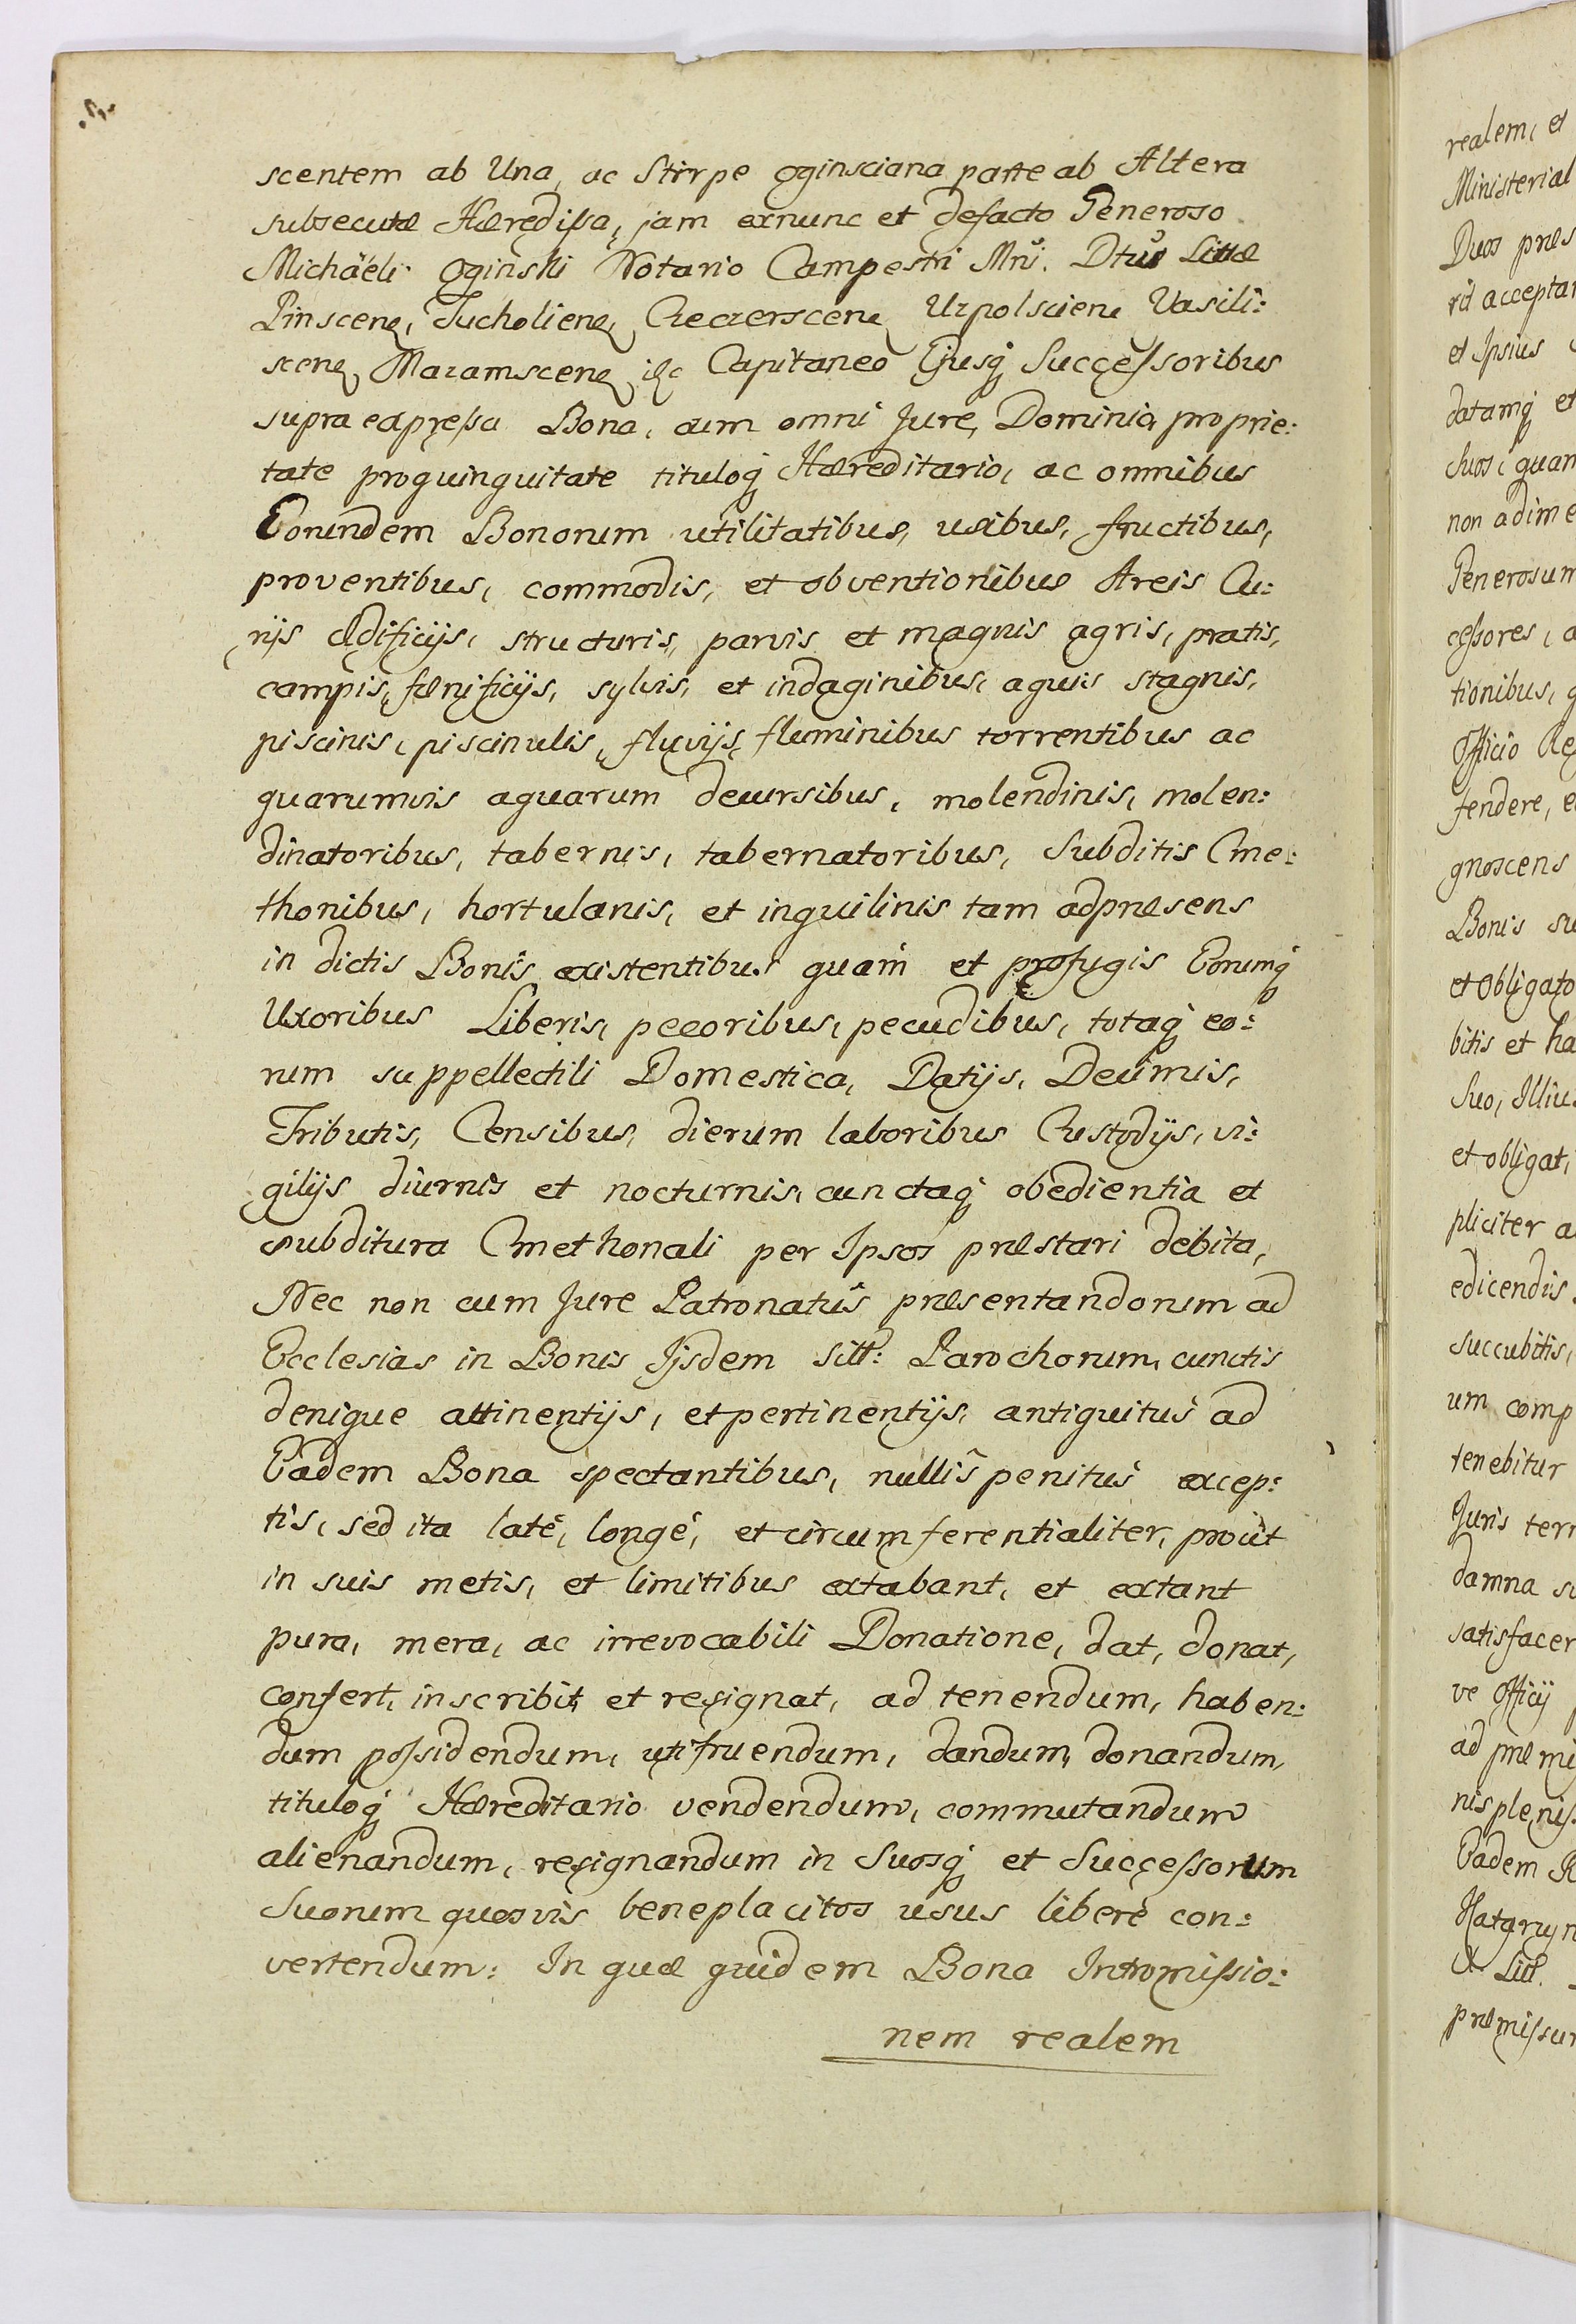 scentem ab Una, ac Stirpe Oginsciana parte ab Altera
subsecutæ Hæredissa, jam exnunc et defacto Generoso
Michäéli Oginski Notario Campestri Mni. Dtus Littæ
Pinscen, Tucholien, Czeczerscen Uzpolscien Vasili:
scen, Mazamscen, etc Capitaneo Ejusq Successoribus
supra expressa Bona, cum omni Jure, Dominio, proprie:
tate proquinquitate tituloq Hæreditario, ac omnibus
Eorundem Bonorum utilitatibus, usibus, fructibus,
proventibus, commodis, et obventionibus Areis Cu:
rijs Ædificijs, structuris, parvis et magnis agris, pratis,
campis, fænificijs, sylvis, et indaginibus, aquis stagnis,
piscinis, piscinulis, fluvijs, fluminibus torrentibus ac
quarumvis aquarum decursibus, molendinis, molen:
dinatoribus, tabernis, tabernatoribus, Subditis Cme:
thonibus, hortulanis, et inquilinis tam adpræsens
in dictis Bonis existentibus quam et profugis Eorumq
Uxoribus Liberis, pecoribus, pecudibus, totaq eo:
rum suppellectili Domestica, Datijs, Decimis,
Tributis, Censibus, dierum laboribus Custodijs, vi:
gilijs diurnis et nocturnis, cunctaq obedientia et
subditura Cmethonali per Ipsos præstari debita,
Nec non cum Jure Patronatûs præsentandorum ad
Ecclesias in Bonis Ijsdem sitt: Parochorum, cunctis
denique attinentijs, et pertinentijs, antiquitus ad
Eadem Bona spectantibus, nullis penitus excep:
tis, sed ita laté, longé, et circumferentialiter, proút
in suis metis, et limitibus extabant, et extant
pura, mera, ac irrevocabili Donatione, dat, donat,
confert, inscribit et resignat, ad tenendum, haben:
dum possidendum, utifruendum, dandum, donandum,
tituloq Hæreditario vendendum, commutandum
alienandum, resignandum in Suosq et Successorum
Suorum quosvis beneplacitos usus liberè con:
vertendum: In quæ quidem Bona Intromissio:
nem realem
realem, et
Ministerial
Duos præs
rit acceptar
et Ipsius
datamq et
Suos, quam
non adime
Generosum
cessores, a
tionibus, q
Officio Re
fendere, e
gnoscens
Bonis su
et obligato
bitis et ha
Suo, Illiu
et obligat,
pliciter a
edicendis
succubitis,
um comp
tenebitur
Juris terr
damna su
satisfacer
ve Officij
ad præmis
nis pleniss
Eadem R
præmissor